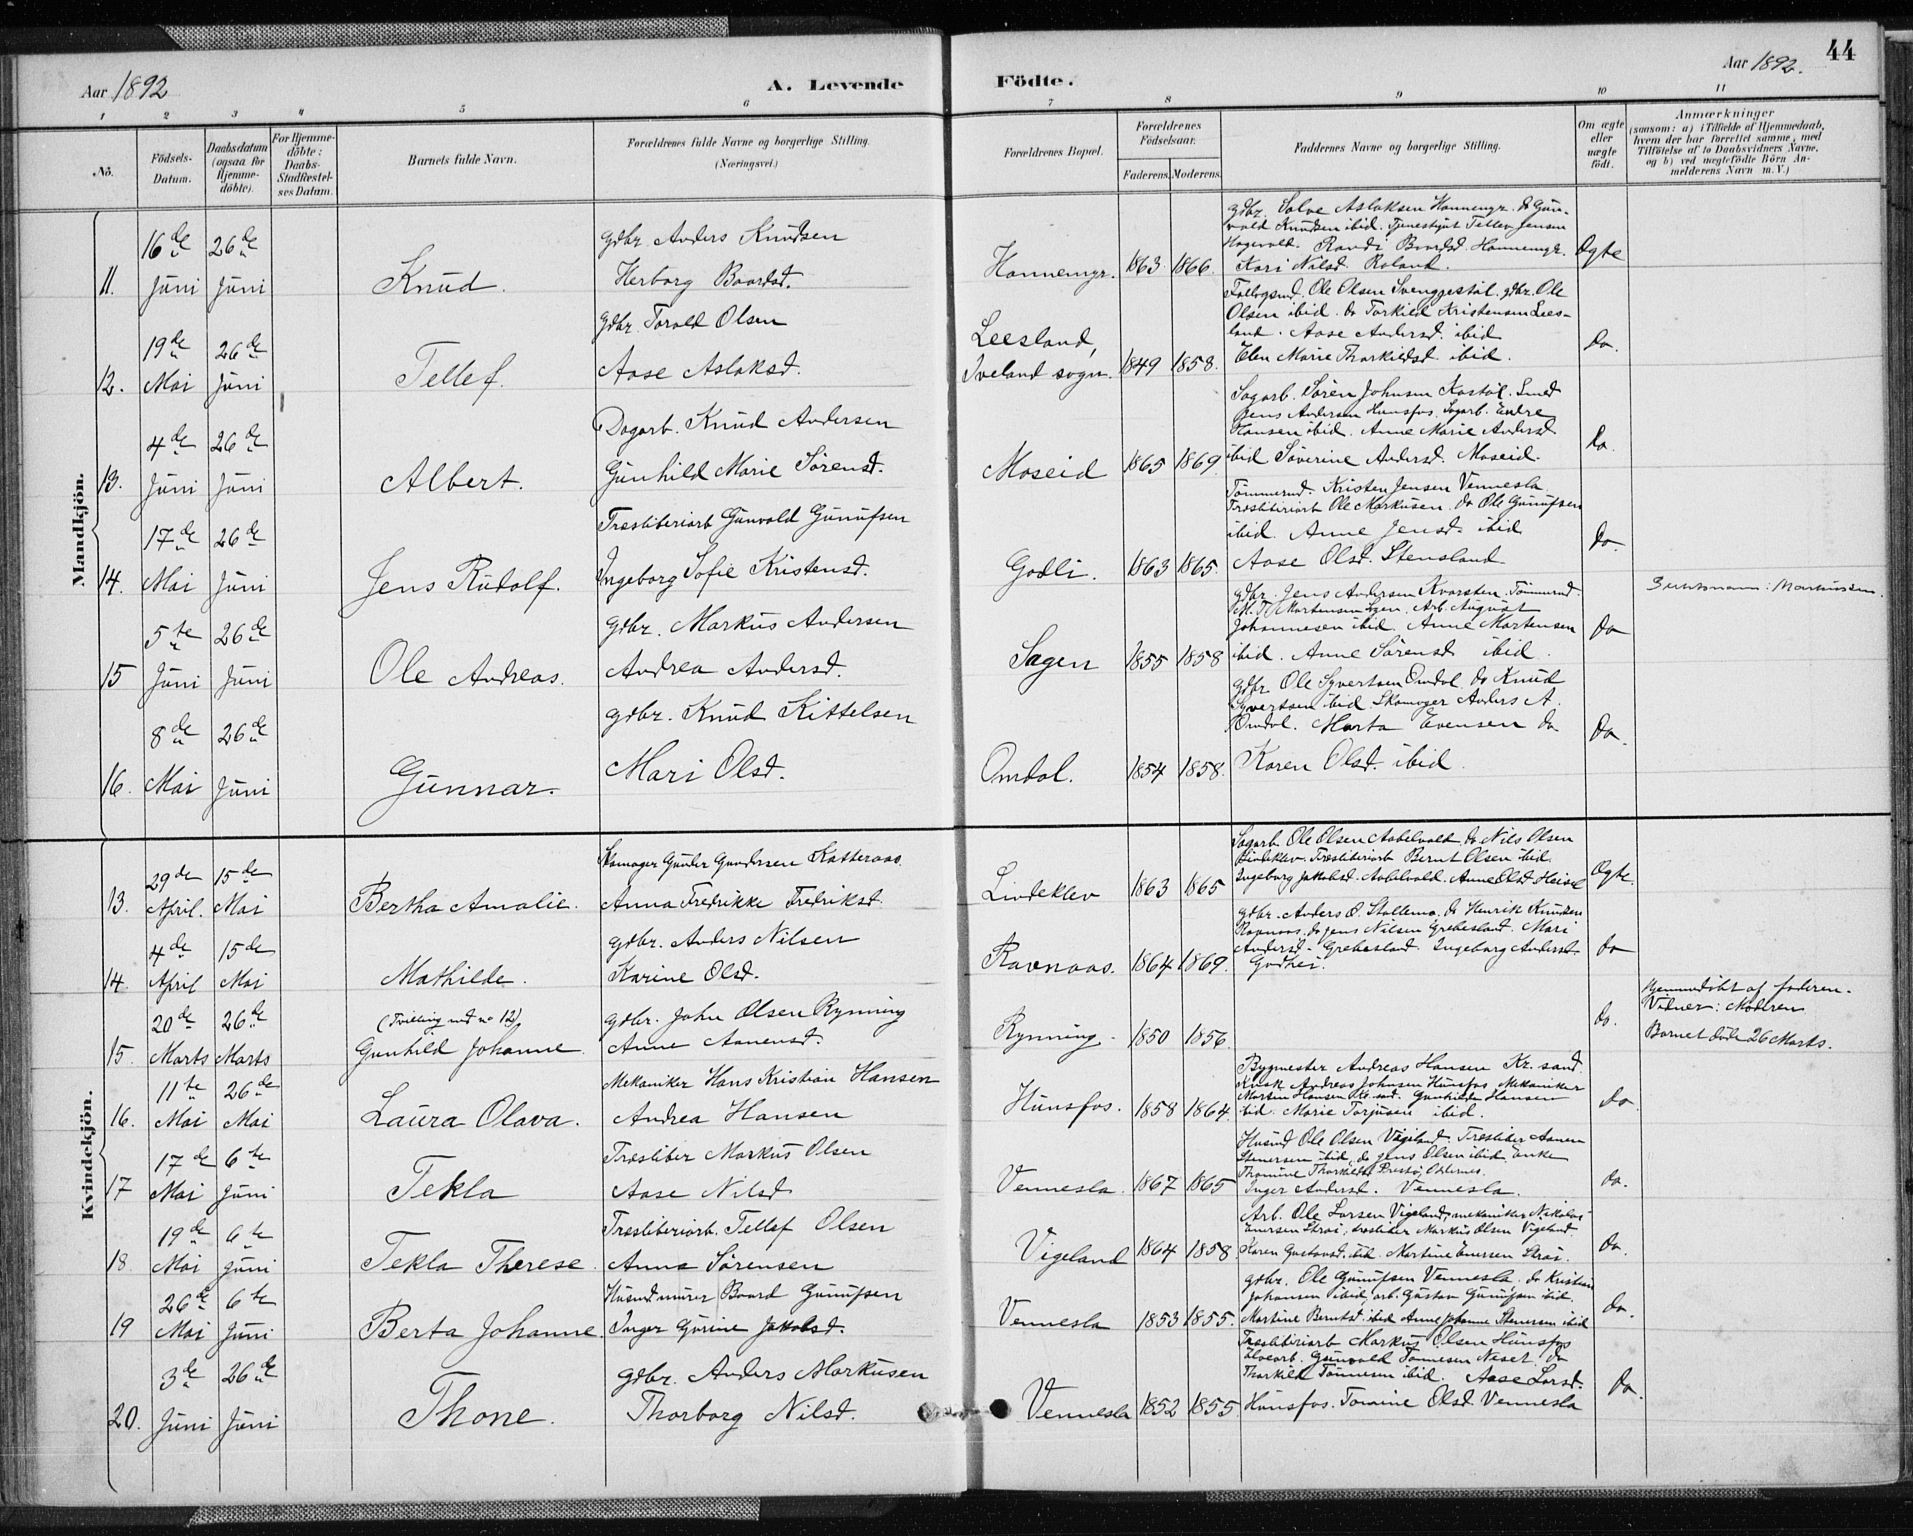 44
Aar 1892
A. Levende
Födte.
Aar 1892.
1 2 3 4 5 6 7 8 9 10 11
No.
Födsels-Datum.
Daabsdatum (ogsaa for Hjemme-döbte).
For Hjemme-döbte: Daabs-Stadfæstel-ses Datum.
Barnets fulde Navn.
Forældrenes fulde Navne og borgerlige Stilling. (Næringsvei.)
Forældrenes Bopæl.
Forældrenes Födselsaar.
Faderens. Moderens.
Faddernes Navne og borgerlig Stilling.
Om ægte eller uægte födt.
Anmærkninger
(saasom: a) i Tilfælde af Hjemmedaab, hvem der har forrettet samme, med Tilföielse af to Daabsvidners Navne, og b) ved uægtefödte Börn An-melderens Navn m. V.)
Mandkjön.
11. 16de Juni 26de Juni Knud.
gdbr. Anders Knudsen
Herborg Baardsd.
Honnemyr. 1863 1866.
gdbr. Salve Aslaksen Honnemyr. do Gun-
vald Knudsen ibid. Tjenestgut Tellev Jensen
Randi Baardsd. Honnemyr.
Kari Nilsd. Roland.
Ægte
12. 19de Mai 26de Juni Tellef.
gdbr. Torald Olsen
Aase Aslaksd.
Leesland,
Iveland sogn. 1849 1858.
Ole Olsen gdbr. Ole
Olsen ibid. do Torkild Kristensen Lees-
land. Aase Andersd. ibid
Elen Marie Thorkildsd. ibid.
do.
13. 4de Juni 26de Juni Albert.
Dagarb. Knud Andersen
Gunhild Marie Sörensd.
Moseid 1865 1869
Sagarb. Sören Johnsen Smed
Jens Andersen Hunsfos. Sagarb. Endre
Hansen ibid. Anne Marie Andersd
ibid Severine Andersd. Moseid.
do.
14. 17de Mai 26de Juni Jens Rudolf.
Træsliberiarb Gunvald Gunufsen
Ingeborg Sofie Kristensd.
Godli. 1863 1865.
Tömmermd. Kristen Jensen Vennesla.
Træsliberiarb Ole Markusen. do Ole Gunufsen
ibid. Anne Jensd. ibid
Aase Olsd. Stensland
do.
15 5te Juni 26de Juni Ole Andreas.
gdbr. Markus Andersen
Andrea Andersd.
Sagen 1855 1858
gdbr. Jens Andersen Kvarsten. Tömmermd.
Mortensen Arb. August
Johannesen ibid. Anne Mortensen
ibid. Anne Sörensd ibid.
do
16. 8de Mai 26de Juni Gunnar.
gdbr. Knud Kittelsen
Mari Olsd.
Omdal. 1854 1858.
gdbr. Ole Syvertsen Omdal. do Knud
Syvertsen ibid Skomager Anders A.
Omdal. Marta Evensen do
Karen Olsd. ibid.
do.
Kvindekjön.
13. 29de April. 15de Mai Bertha Amalie.
Skomager Gunder Gundersen Katteraas.
Anna Fredrikke Fredriksd.
Lindeklev 1863 1865
Sagarb Ole Olsen Aabelvold do Nils Olsen
Lindeklev. Træsliberiarb Bernt Olsen ibid.
Ingeborg Jakobsd. Aabelvold. Anne Olsd Heisel
Ægte.
14. 4de April 15de Mai Mathilde.
gdbr. Anders Nilsen
Karine Olsd.
Ravnaas. 1864 1869.
gdbr. Anders O. Stallemo. do Henrik Knudsen
Ravnaas. do Jens Nilsen Grebesland. Mari
Andersd. Grebesland. Ingeborg Andersd.
do
15. 20de Marts 26de Marts (Tvilling med no 12)
Gunhild Johanne.
gdbr. John Olsen Rynning
Anne Aanensd.
Rynning. 1850 1856.
do.
Hjemmedöbt af faderen.
Vidner: Moderen
Barnet döde 26 Marts.
16. 11te Mai 26de Mai Laura Olava.
Mekaniker Hans Kristian Hansen
Andrea Hansen
Hunsfos. 1858 1864.
Bygmester Andreas Hansen Kr. sand.
Kusk Andreas Johnsen Hunsfos. Mekaniker
Martin Hansen Kr. sand. Gunhilda Hansen
ibid. Marie Torjusen ibid.
do
17 17de Mai 6te Juni Tekla
Træsliber Markus Olsen
Aase Nilsd
Vennesla. 1867 1865
Husmd Ole Olsen Vigeland. Træsliber Aanen
Stenersen ibid, do Jens Olsen ibid. Enke
Thomine Thorkildsd
Inger Andersd. Vennesla.
do.
18. 19de Mai 6te Juni Tekla Therese
Træsliberiarb. Tellef Olsen
Anna Sörensen
Vigeland 1864 1858.
Arb. Ole Larsen Vigeland, mekaniker Nikolai
Enersen Strai, træsliber Markus Olsen Vigeland
Karen Gustavsd. ibid. Martine Enersen Strai.
do.
19 26de Mai 6te Juni Berta Johanne.
Husmd murer Baard Gunufsen
Inger Gurine Jakobsd.
Vennesla 1853 1855.
gdbr. Ole Gunufsen Vennesla. do Kristian
Johansen ibid, arb. Gustav Gunufsen ibid.
Martine Berntsd. ibid Anne Johanne Stenersen ibid
do.
20. 3de Juni 26de Juni Thone.
gdbr. Anders Markusen
Thorborg Nilsd.
Vennesla 1852 1855.
Træsliberiarb Markus Olsen Hunsfos
Elvearb. Gunvald Tönnesen Neset. do
Thorkild Tönnesen ibid. Aase Larsd.
Hunsfos. Tomine Olsd Vennesla
do.